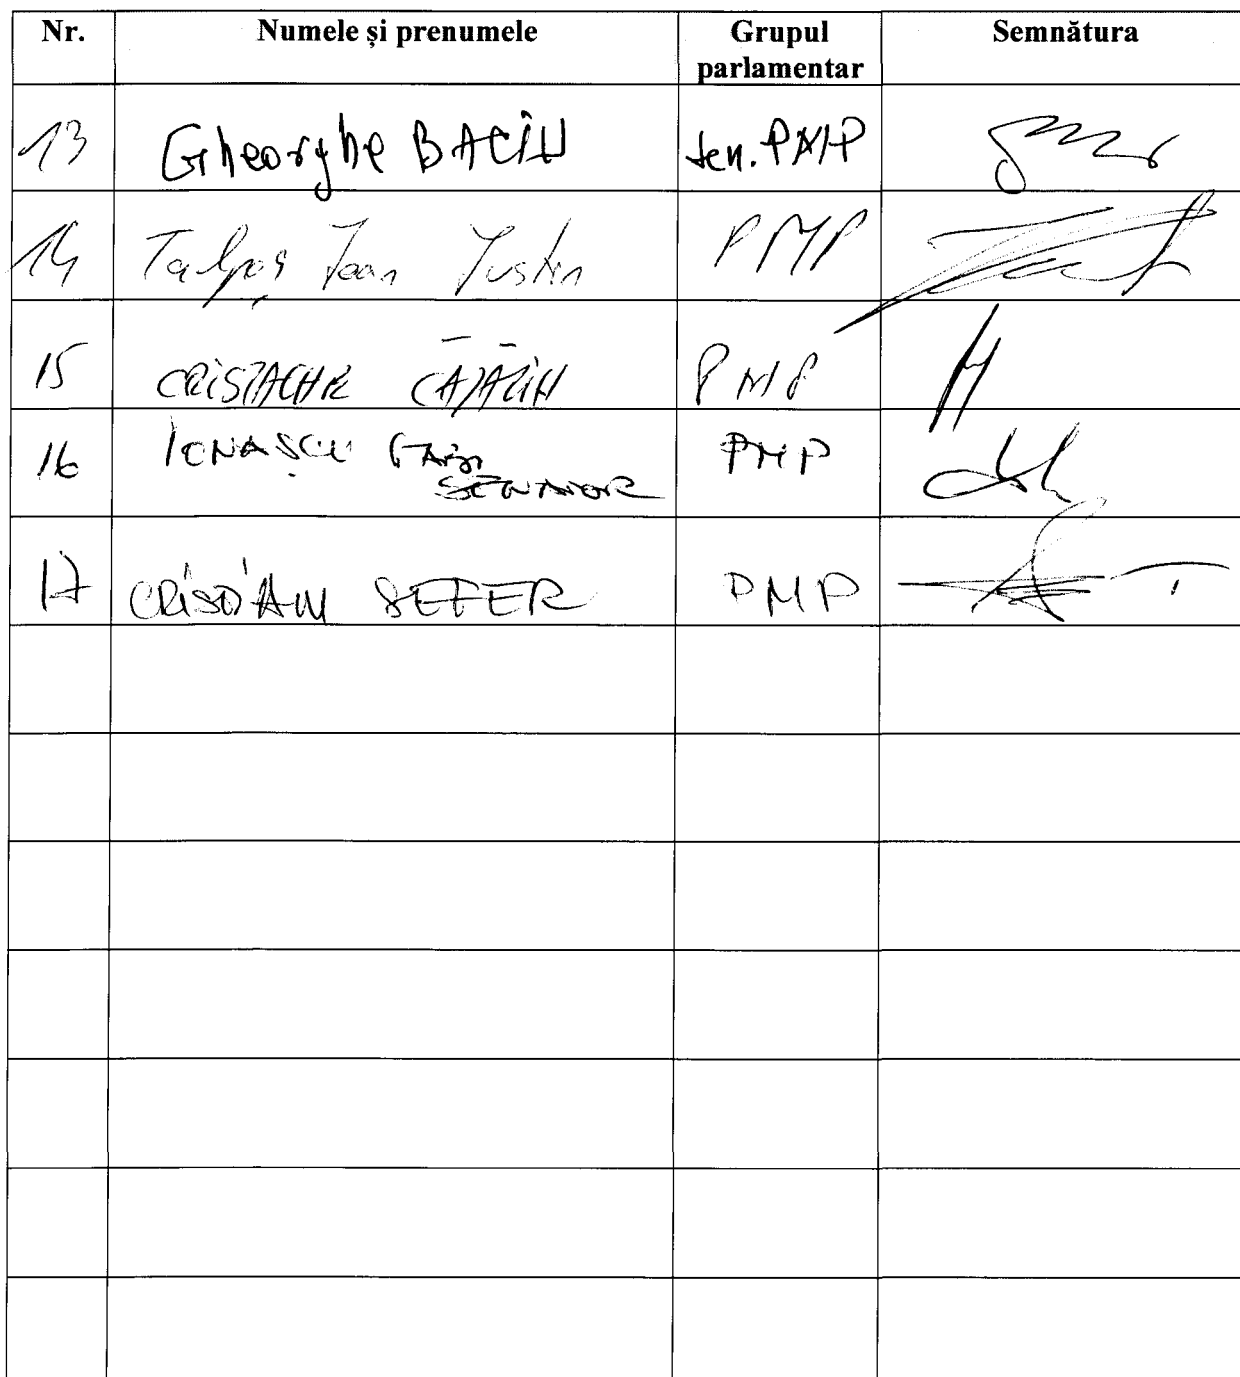 Nr. Numele și prenumele Grupul parlamentar Semnătura
13 Gheorghe BACIU sen. PMP
14 Talpoș Ioan Iustin PMP
15 CRISTACHE CĂTĂLIN PMP
16 IONAȘCU GABI SENATOR PMP
17 CRISTIAN SEFER PMP